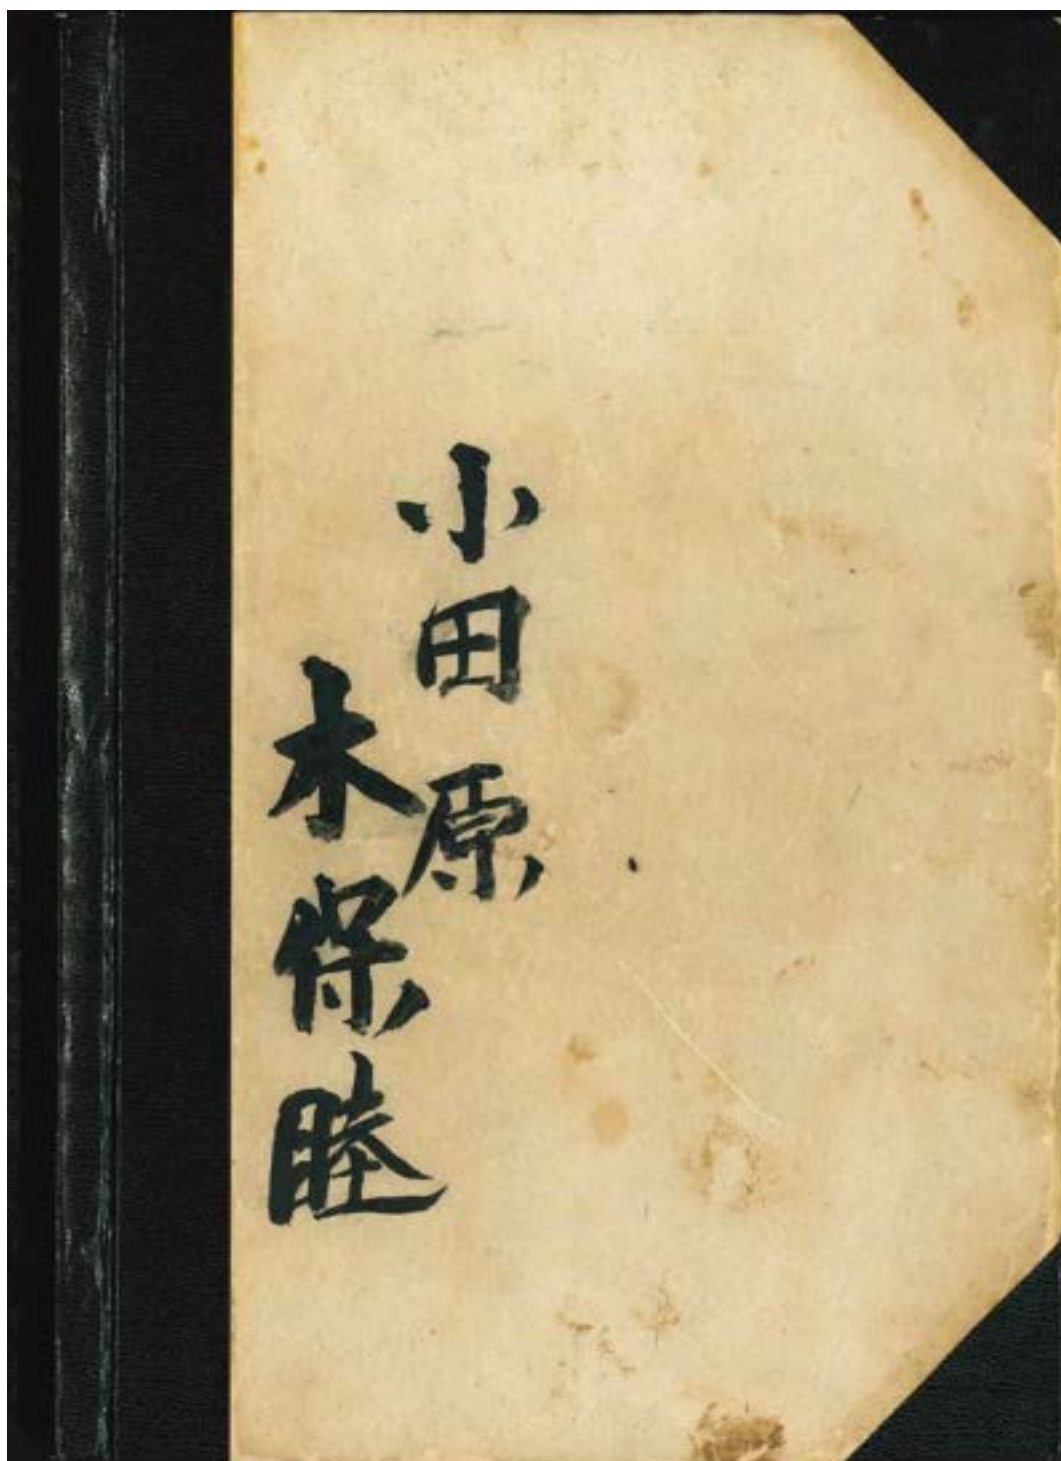 小田原
木保睦